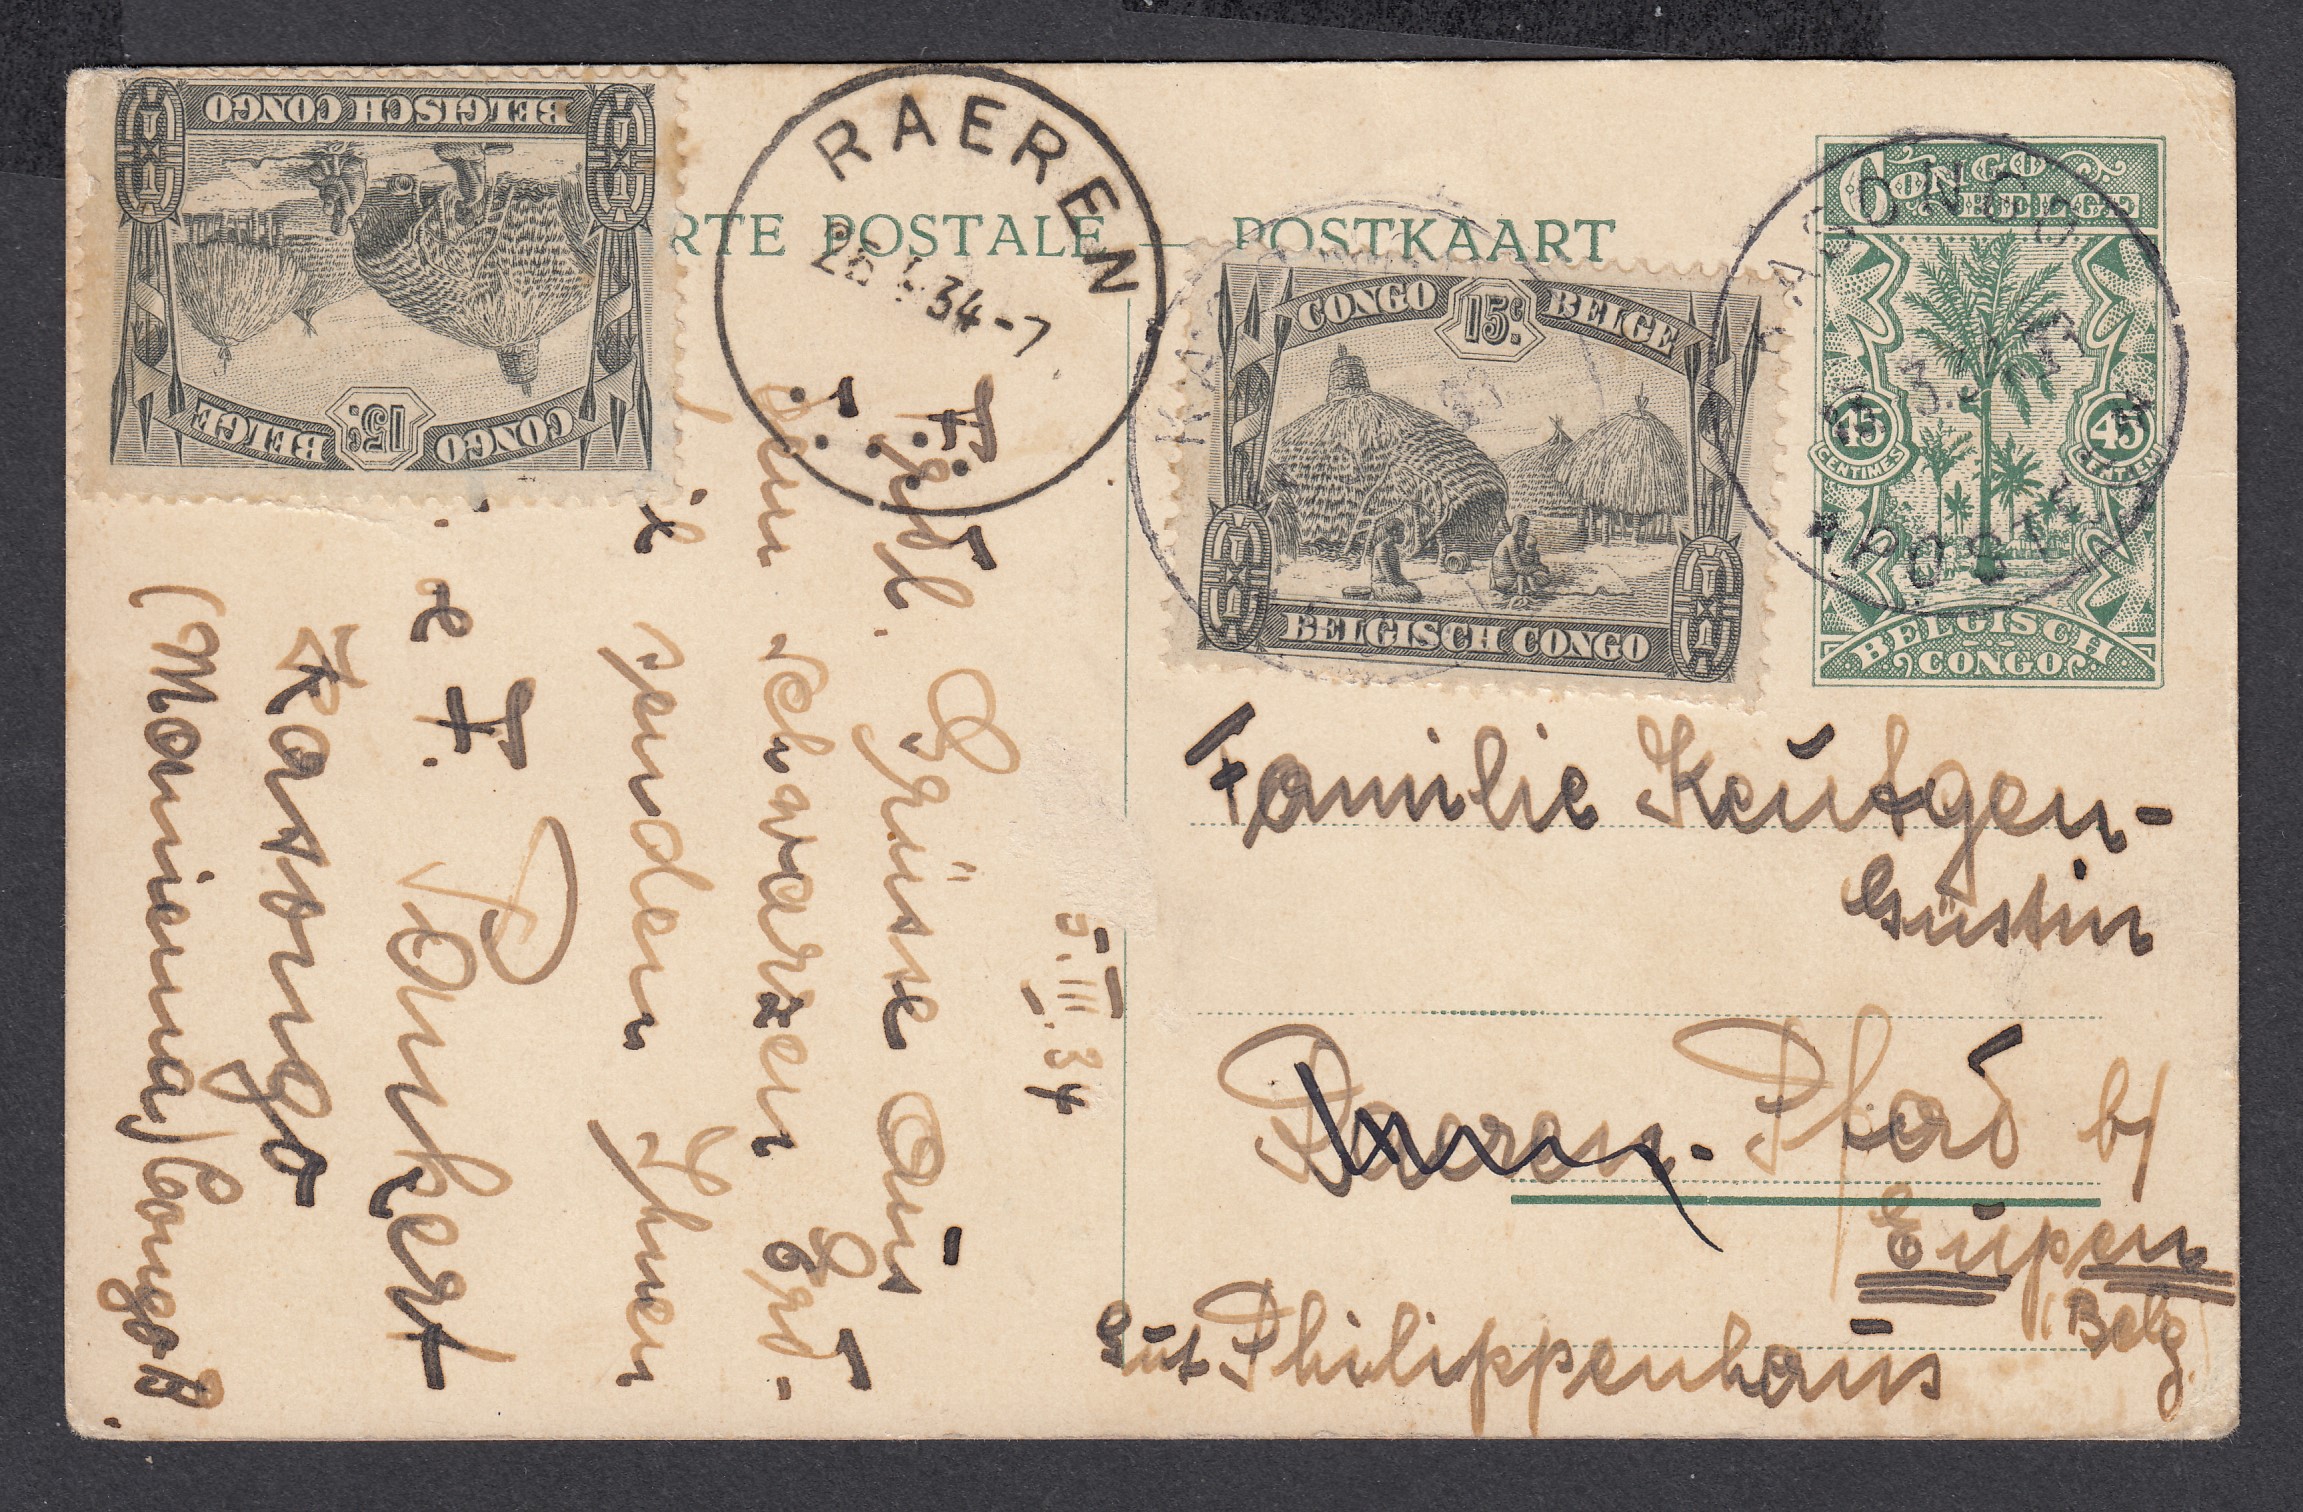 BELGISCH CONGO
CONGO 15c. BELGE
RAEREN
34-7
RTE POSTALE — POSTKAART
CONGO 15c. BELGE
BELGISCH CONGO
CONGO
KASONGO
POSTE
45 CENTIMES
45
BELGISCH
CONGO
5.III.34
Frdl. Grüsse aus
dem schwarzen Erd-
senden Ihnen
F. Pankert
Kasongo
(Maniema) Congo B.
Familie Keutgen-
Güstin
Raeren. Pfad b/
Eupen
Belg.
Gut Philippenhaus